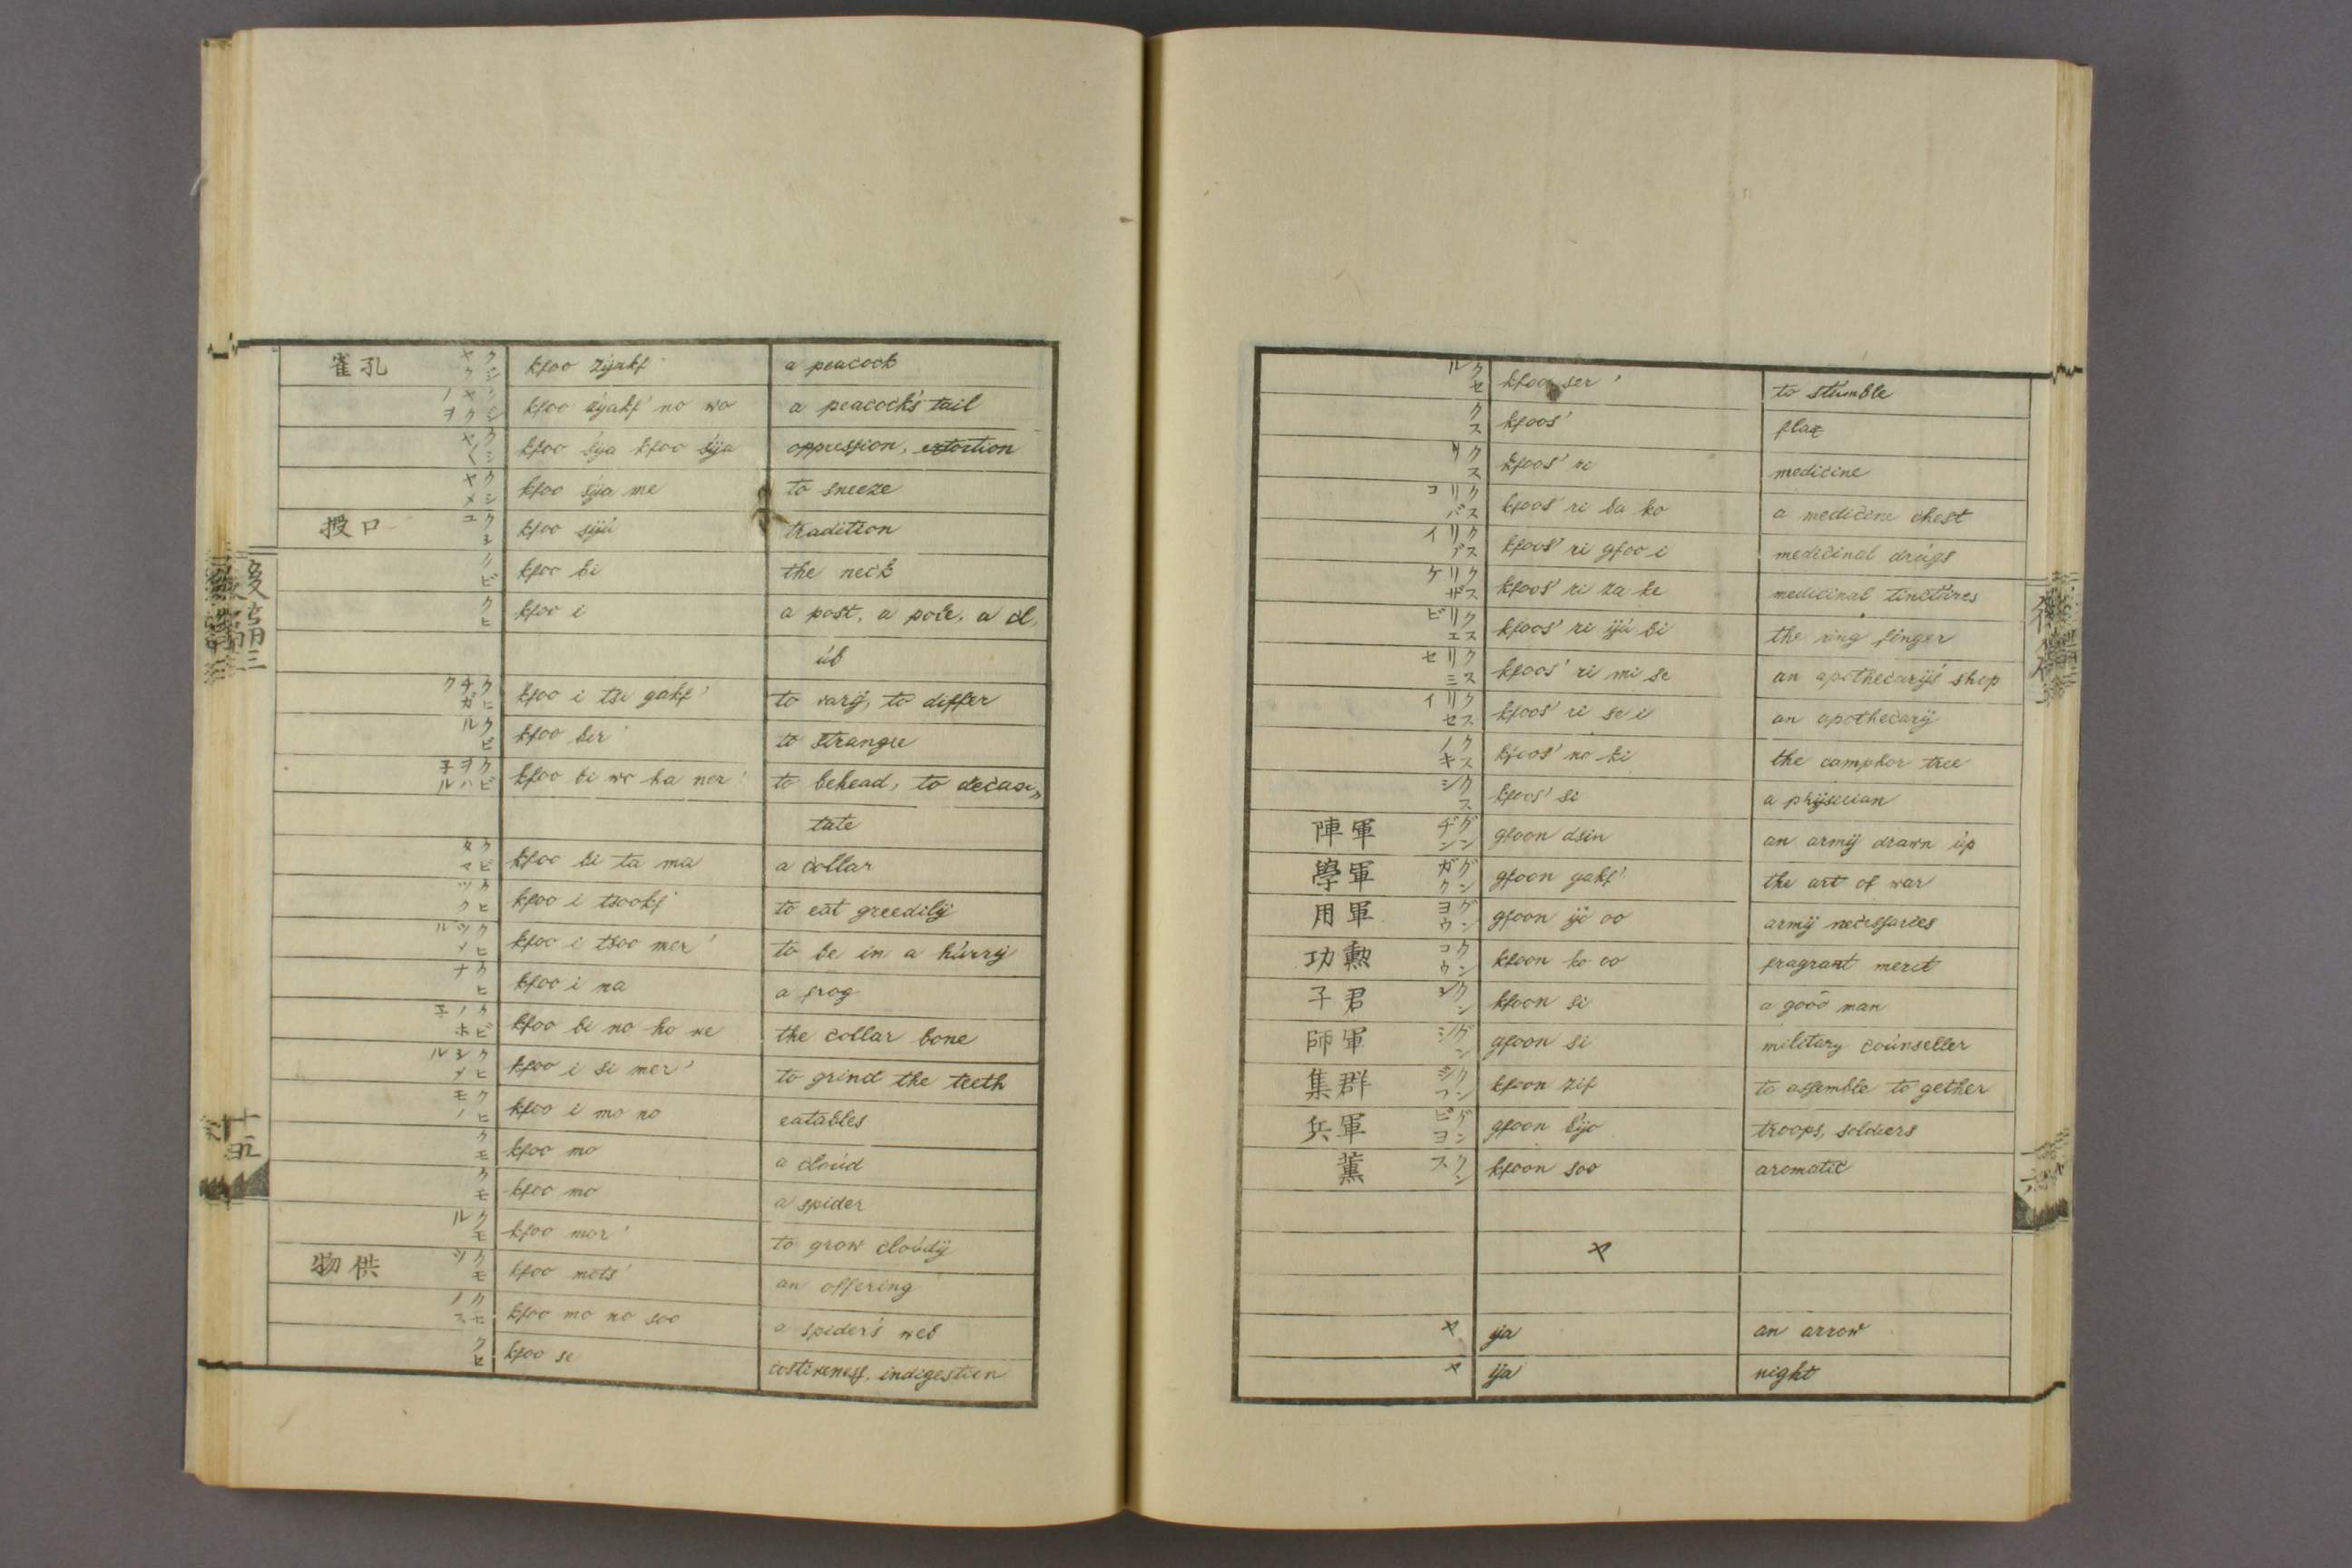 孔雀 クジヤク kfoo zÿakf' a peacock
クジヤクノヲ kfoo zÿakf' no wo a peacock's tail
クシヤ〱 kfoo sÿa kfoo sÿa oppression, extortion
クシヤメ kfoo sÿa me to sneeze
口授 クジユ kfoo sÿú tradition
クビ kfoo bi the neck
クヒ kfoo i a post, a pole, a cl,
úb
クヒチガク kfoo i tsi gakf' to varÿ, to differ
クビル kfoo bir' to strangle
クビヲハ子ル kfoo bi wo ha ner' to behead, to decapi,,
tate
クビタマ kfoo bi ta ma a collar
クヒツク kfoo i tsookf' to eat greedilÿ
クヒツメル kfoo i tsoo mer' to be in a húrrÿ
クヒナ kfoo i na a frog
クビノホ子 kfoo bi no ho ne the collar bone
クヒシメル kfoo i si mer' to grind the teeth
クヒモノ kfoo i mo no eatables
クモ kfoo mo a cloúd
クモ kfoo mo a spider
クモル kfoo mor' to grow cloúdÿ
供物 クモツ kfoo mots' an offering
クモノス kfoo mo no soo a spider's web
クセ kfoo se costiveness, indigestion
十五
クセル kfoo ser' to stúmble
クス kfoos' flax
クスリ kfoos' ri medicine
クスリバコ kfoos' ri ba ko a medicine chest
クスリグイ kfoos' ri gfoo i medicinal drúgs
クスリザケ kfoos' ri za ke medicinal tinctúres
クスリエビ kfoos' ri ÿú bi the ring finger
クスリミセ kfoos' ri mi se an apothecarÿ's shop
クスリセイ kfoos' ri se i an apothecarÿ
クスノキ kfoos' no ki the camphor tree
クスシ kfoos' si a phÿsician
軍陣 グンヂン gfoon dsin an armÿ drawn úp
軍學 グンガク gfoon gakf' the art of war
軍用 グンヨウ gfoon ÿo oo armÿ necessaries
勲功 クンコウ kfoon ko oo fragrant merit
君子 クンシ kfoon si a good man
軍師 グンシ gfoon si military coúnseller
群集 クンジフ kfoon zif to assemble to gether
軍兵 グンビヨ gfoon bÿo troops, soldiers
薫 クンス kfoon soo aromatic
ヤ
ヤ ÿa an arrow
ヤ ÿa night